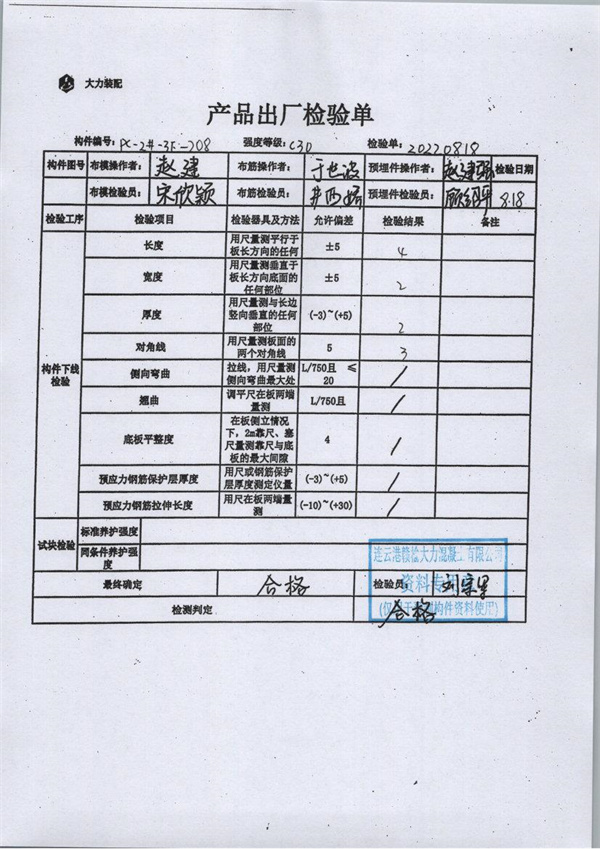 大力装配
产品出厂检验单
构件编号: PC-2#-3F-708 强度等级: C30 检验单: 20220818
构件图号 布模操作者: 赵建 布筋操作者: 于世波 预埋件操作者: 赵建强 检验日期
布模检验员: 宋欣颖 布筋检验员: 预埋件检验员: 8.18
检验工序 检验项目 检验器具及方法 允许偏差 检验结果 备注
构件下线检验
长度 用尺量测平行于板长方向的任何 ±5 4
宽度 用尺量测垂直于板长方向底面的任何部位 ±5 2
厚度 用尺量测与长边竖向垂直的任何部位 (-3)~(+5) 2
对角线 用尺量测板面的两个对角线 5 3
侧向弯曲 拉线，用尺量测侧向弯曲最大处 L/750且 ≤20 /
翘曲 调平尺在板两端量测 L/750且 /
底板平整度 在板侧立情况下，2m靠尺、塞尺量测靠尺与底板的最大间隙 4 /
预应力钢筋保护层厚度 用尺或钢筋保护层厚度测定仪量 (-3)~(+5) /
预应力钢筋拉伸长度 用尺在板两端量测 (-10)~(+30) /
试块检验 标准养护强度
同条件养护强度
最终确定 合格 检验员:
检测判定 合格
连云港赣榆大力混凝土有限公司
资料专用
构件资料使用)